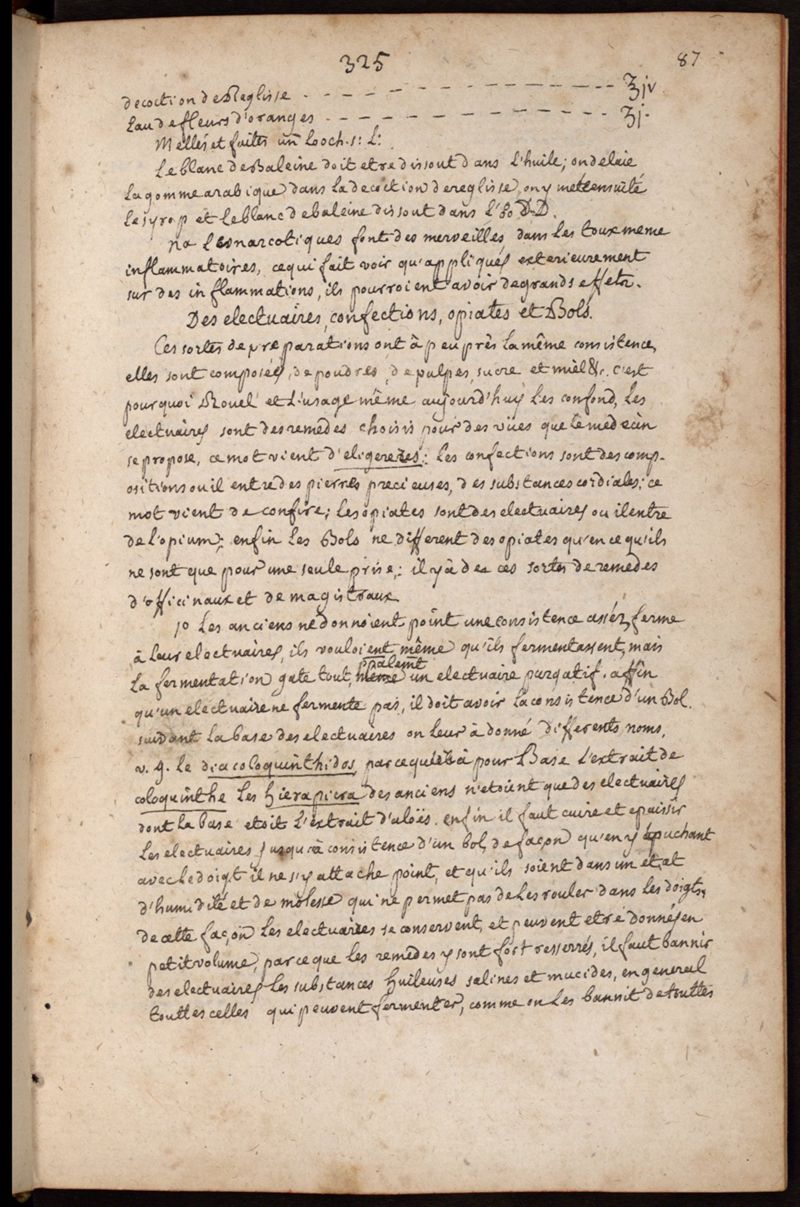 325
87
decoction de Reglisse - - - - - - - - - - - ʒiv
Eau de fleurs d'oranges - - - - - - - - - - ʒj.
Melles et faites un Looch. s: L:
Le blanc de Baleine doit etre dissout dans l'huile; on delaie
la gomme arabique dans la decoction de reglisse, on y met ensuite
le syrop et le blanc de baleine dissout dans l'
na Les narcotiques font des merveilles, dans les toux meme
inflammatoires, ce qui fait voir qu'appliqués exterieurement
sur des inflammations, ils pourroient avoir de grands effets.
Des electuaires, confections, opiates et Bols.
Ces sortes de preparations ont à peu près la même consistence,
elles sont composées, de poudres, de pulpes, sucre et miel &c. c'est
pourquoi Rouel et L'usage même aujourd'huy les confond, Les
electuaires sont des remedes choisis pour des vües que le medecin
se propose, ce mot vient d'eligeres: Les confections sont des comp-
ositions ou il entre des pierres precieuses, des substances cordiales; ce
mot vient de confire; les opiates sont des electuaires ou il entre
de l'opium; enfin les Bols ne different des opiates qu'en ce qu'ils
ne sont que pour une seule prise,: il y à de ces sortes de remedes
d'officinaux et de magistraux
1º Les anciens ne donnoient point une consistence assez ferme
à leur electuaires, ils vouloient même qu'ils fermentassent, mais
la fermentation gate tout, même un electuaire purgatif. affin
qu'un electuaire ne fermente pas, il doit avoir la consistence d'un Bol.
suivant la base des electuaires on leur à donné differents noms,
v. g. Le diacoloquinthidos, parcequ'il à pour Base l'extrait de
coloquinthe Les hierapicra des anciens n'etoient que des electuaires
dont la base etoit L'extrait d'aloës. enfin il faut cuire et epaissir
Les electuaires jusqu'à consistence d'un bol, de façon qu'en y touchant
avec le doigt il ne s'y attache point, et qu'ils soient dans un etat
d'humidité et de molesse qui ne permet pas de les rouler dans les doigts,
de cette façon les electuaires se conservent, et peuvent etre donnés en
petit volume, parce que les remedes y sont fort resserrés, il faut bannir
des electuaires les substances huileuses salines et mucides, en general
touttes celles qui peuvent fermenter, comme on les bannit de touttes